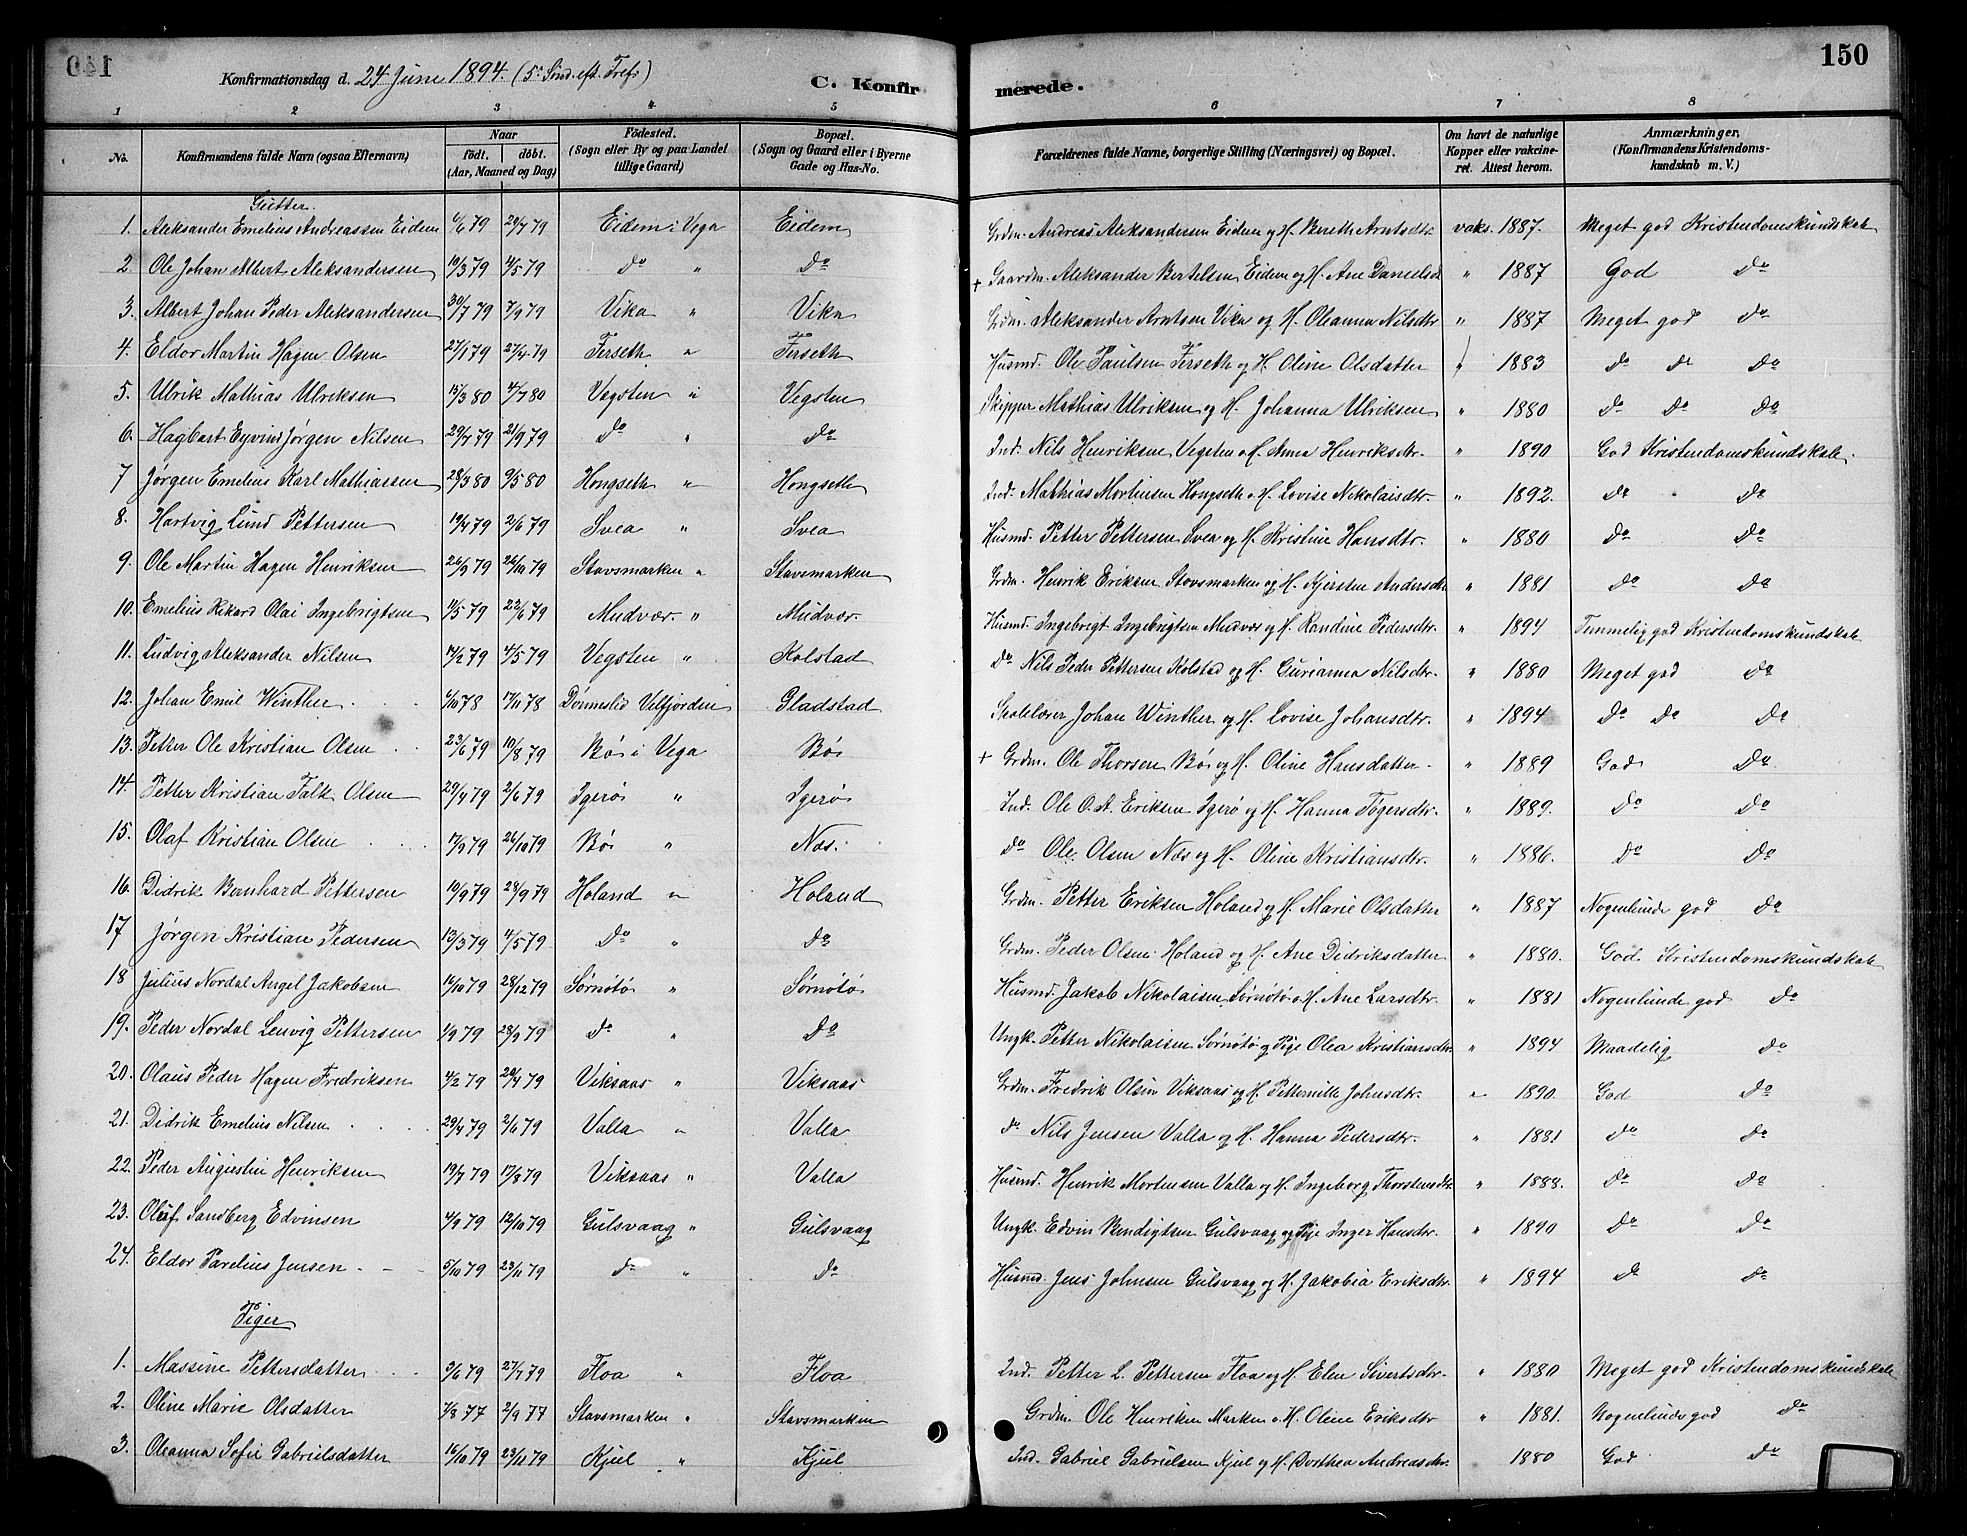 150
Konfirmationsdag d. 24 June 1894. (5te Sönd. eft. Trefr)
C. Konfirmerede.
1 2 3 4 5 6 7 8
No. Konfirmandens fulde Navn (ogsaa Efternavn) Naar födt. döbt. (Aar, Maaned og Dag) Födested. (Sogn eller By og paa Landet tillige Gaard) Bopæl. (Sogn og Gaard eller i Byerne Gade og Hus-No. Forældrenes fulde Navne, borgerlige Stilling (Næringsvei) og Bopæl. Om havt de naturlige Kopper eller vakcineret. Attest herom. Anmærkninger, (Konfirmandens Kristendomskundskab m. V.)
Gutter.
1. Aleksander Emelius Andreassen Eidem 6/6 79 29/7 79 Eidem i Vega Eidem Grdm. Andreas Aleksandersen Eidem og H. Bereth Arntsdtr. vaks. 1887. Meget god Kristendomskundskab
2. Ole Johan Albert Aleksandersen 19/3 79 4/5 79 do " do + Gaardm. Aleksander Bertelsen Eidem og H. Ane Danielsd " 1887 God do
3. Albert Johan Peder Aleksandersen 30/7 79 7/9 79 Vika " Vika Grdm. Aleksander Arntsen Vika og H. Oleanna Nilsdtr " 1887 Meget god do
4. Eldor Martin Hagen Olsen 27/1 79 27/4 79 Ferseth " Ferseth Husmd. Ole Paulsen Ferseth og H. Oline Olsdatter " 1883 do do do
5. Ulrik Mathias Ulriksen 15/3 80 4/7 80 Vegsten " Vegsten Skipper Mathias Ulriksen og H. Johanna Ulriksen " 1880 do do do
6. Hagbart Eyvind Jørgen Nilsen 29/7 79 21/9 79 do " do Ind. Nils Henriksen Vegsten o. H. Anna Henriksdtr. " 1890 God Kristendomskundskab.
7 Jørgen Emelius Karl Mathiassen 28/3 80 9/5 80 Hongseth " Hongseth Ind. Mathias Mortensen Hongseth o. H. Lovise Nikolaisdtr. " 1892. do do
8. Hartvig Lund Pettersen 19/4 79 2/6 79 Svea " Svea Husmd. Petter Pettersen Svea og H. Kristine Hansdtr. " 1880 do do
9. Ole Martin Hagen Henriksen 26/9 79 26/10 79 Stavsmarken " Stavsmarken Grdm. Henrik Eriksen Stavsmarken og H. Kjersten Andersdtr " 1881 do do
10. Emelius Rikard Olai Ingebrigtsen 11/5 79 22/6 79 Mudvær. " Mudvær. Husmd. Ingebrigt Ingebrigtsen Mudvær og H. Randine Pedersdtr. " 1894 Temmelig god Kristendomskundskab
11. Ludvig Aleksander Nilsen 17/2 79 4/5 79 Vegsten " Kolstad do Nils Peder Pettersen Kolstad og H. Gurianna Nilsdtr. " 1880 Meget god do
12. Johan Emil Winther 6/10 78 17/11 78 Dønneslid Velfjorden Gladstad Skolelærer Johan Winther og H. Lovise Johansdtr. " 1894 do do do
13. Petter Ole Kristian Olsen 23/6 79 10/8 79 Bø i Vega Bø + Grdm. Ole Thorsen Bø og H. Oline Hansdatter " 1889 God do
14. Petter Kristian Falk Olsen 29/4 79 2/6 79 Igerø " Igerø Ind. Ole O. A. Eriksen Igerø og H. Hanna Tøgersdtr. " 1889. do do
15. Olaf Kristian Olsen 17/9 79 26/10 79 Bø " Næs. do Ole Olsen Næs og H. Oline Kristiansdtr. " 1886. do do
16. Didrik Bernhard Pettersen 10/9 79 28/9 79 Holand " Holand Grdm. Petter Eriksen Holand og H. Marie Olsdatter " 1887 Nogenlunde god do
17 Jørgen Kristian Pedersen 13/3 79 4/5 79 do " do Grdm. Peder Olsen Holand og H. Ane Didriksdatter " 1880. God Kristendomskundskab
18 Julius Nordal Angel Jakobsen 14/10 79 28/12 79 Sørnøtø " Sørnøtø Husmd. Jakob Nikolaisen Sørnøtø o. H. Ane Larsdtr. " 1881 Nogenlunde god do
19. Peder Nordal Lenvig Pettersen 1/9 79 28/9 79 do " do Ungk. Petter Nikolaisen Sørnøtø og Pige Olea Kristiansdtr. " 1894 Maadelig do
20. Olaus Peder Hagen Fredriksen 4/2 79 20/4 79 Viksaas " Viksaas Grdm. Fredrik Olsen Viksaas og H. Petternille Johnsdtr. " 1890. God do
21. Didrik Emelius Nilsen 29/4 79 2/6 79 Valla " Valla do Nils Jensen Valla og H. Hanna Pedersdtr. " 1881 do do
22. Peder Augustin Henriksen 19/7 79 17/8 79 Viksaas " Valla Husmd. Henrik Mortensen Valla og H. Ingeborg Thorstensdtr " 1888. do do
23. Olaf Sandberg Edvinsen 4/9 79 12/10 79 Gulsvaag " Gulsvaag Ungk. Edvin Bendigtsen Gulsvaag og Pige Inger Hansdtr. " 1890 do do
24. Eldor Parelius Jensen 5/10 79 23/11 79 do " do Husmd. Jens Johnsen Gulsvaag og H. Jakobia Eriksdtr. " 1894 do do
Piger
1. Massine Pettersdatter 3/6 79 27/7 79 Floa " Floa Ind. Petter L. Pettersen Floa og H. Elen Sivertsdtr. " 1880 Meget god Kristendomskundskab
2. Oline Marie Olsdatter 7/8 77 2/9 77 Stavsmarken " Stavsmarken Grdm. Ole Henriken Marken o. H. Oline Eriksdtr " 1881. Nogenlunde god do
3. Oleanna Sofie Gabrielsdatter 16/10 79 23/11 79 Kjul " Kjul Ind. Gabriel Gabrielsen Kjul og H. Dorthea Andreasdtr. 1880 God do